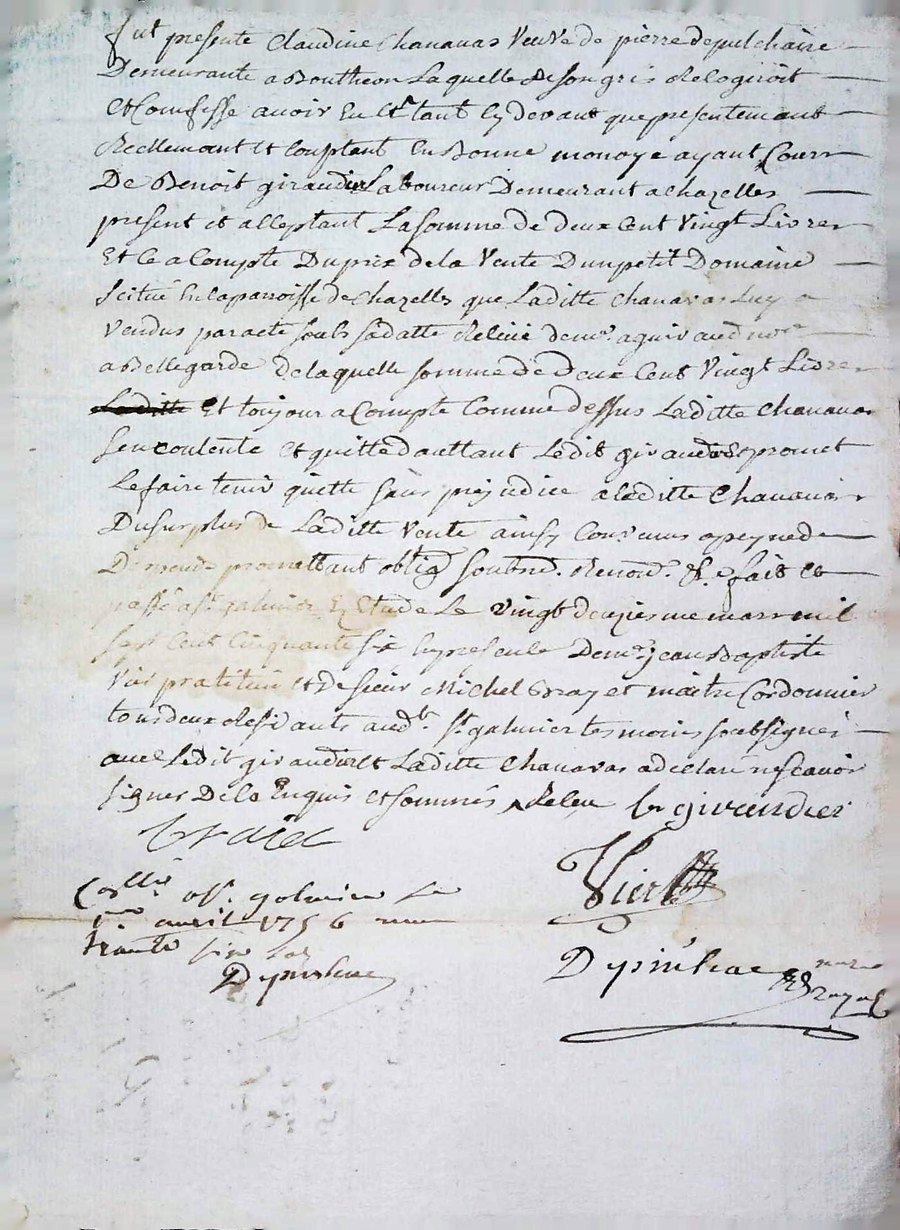 fut presente Claudine Chanavas Veuve de pierre depulchaire
Demeurante a Bouthéon Laquelle de son gré
Et Confesse avoir Eu tant cy devant que presentemant
Reellemant Et Comptant En Bonne monoye ayant Cours
De Benoit giraudier Laboureur Demeurant a chazelles
present et acceptant La somme de deux Cent Vingt Livres
Et ce a Compte Du prix de la Vente Dun petit Domaine
scitué En la paroisse de Chazelles que Laditte chanavas Luy a
Vendus par acte soubs sa datte me. aguiraud nore
a Bellegarde de laquelle somme de Deux Cent Vingt Livres
Laditte Et toujour a Compte Comme dessus Laditte chanavas
sen contente Et quitte dautant Ledit giraudier promet
Le faire tenir quitte sans prejudice a laditte Chanavas
Du surplus de Laditte Vente ainsy a peyne de
promettant oblig. soubm. renon. &. fait et
passé a st. galmier En Etude Le Vingt deuxiesme mars mil
sept Cent Cinquante six En presence De me. jean Baptiste
Vier pratitien Et de sieur Michel maitre Cordonnier
tous deux residants aud. st. galmier tesmoins soubsignés
avec Ledit giraudier Et Laditte Chanavas a declaré ne scavoir
signer De ce Enquis Et sommés b giraudier
Vier
Conllé a st. galmier le
avril 1756
Depinhac
Depinhac
royal